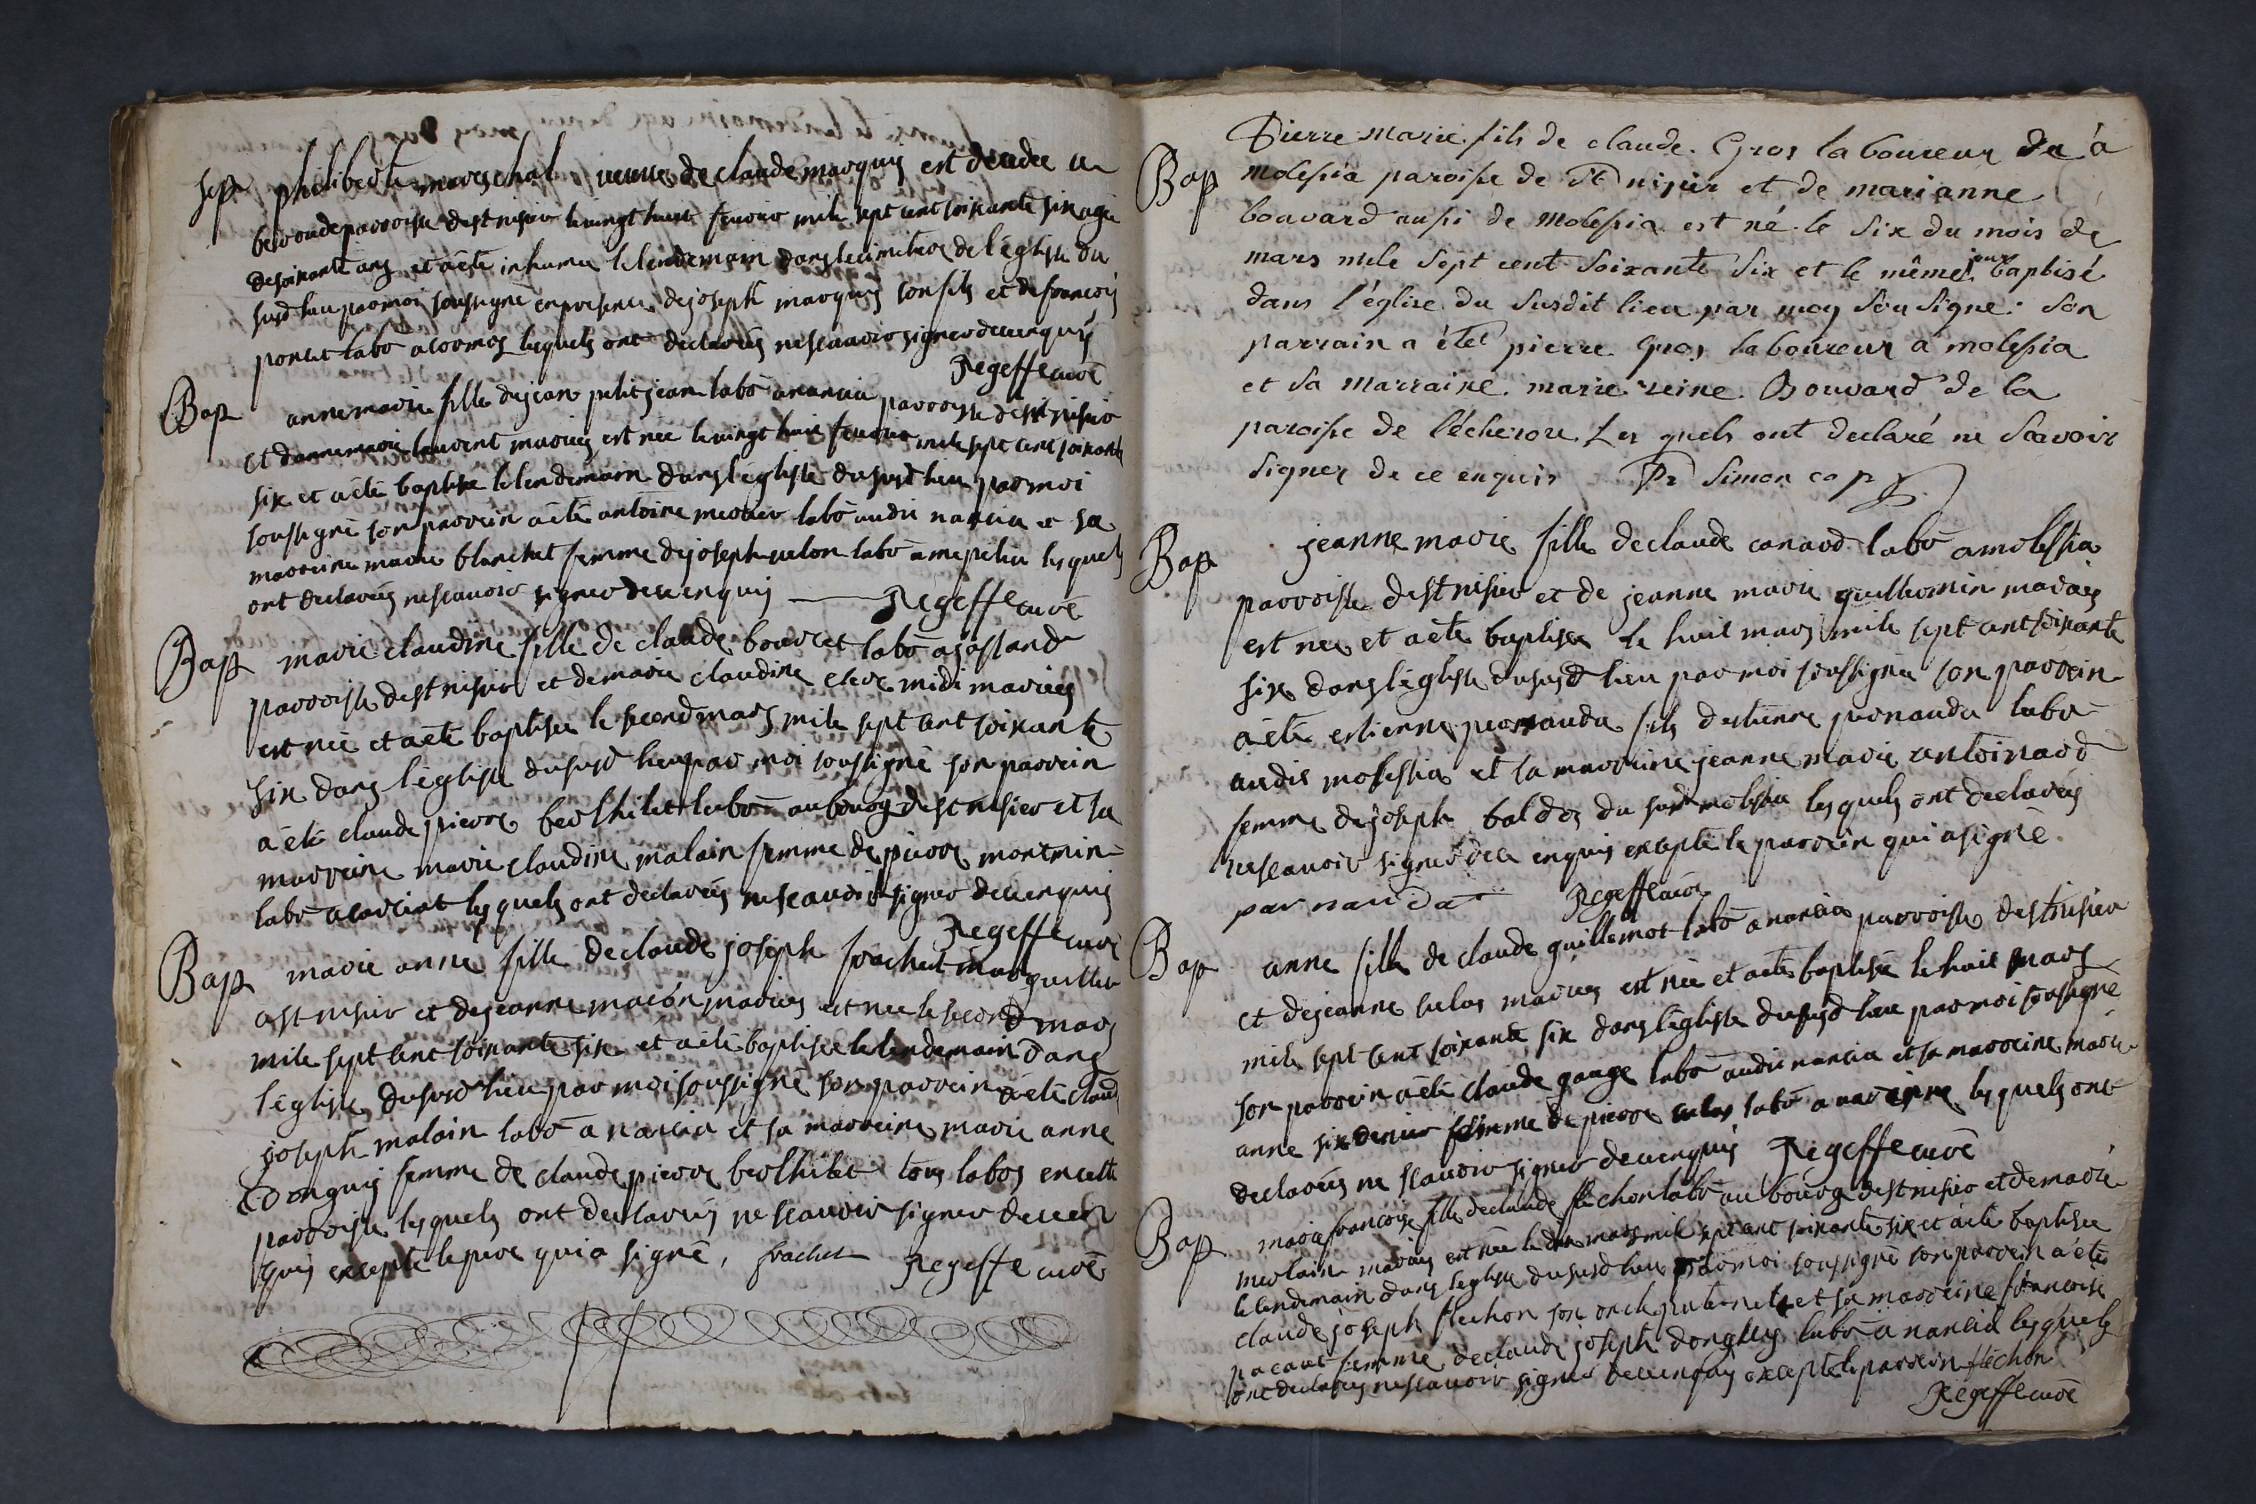 Sep philiberte mareschal veuve de claude marquis est decedee a
paroisse de st nisier le vingt huit fevrier mile sept cent soixante six agee
de soixante ans et a été inhumee le lendemain dans le cimitiere de l'église du
susd lieu par moi soussigné en presence de joseph marquis son fils et de francois
poncet labr a cormoz lesquels ont declarés ne scauoir signer de ce enquis
Regeffe curé
Bap anne marie fille de jean petit jean labr a nancia parroisse de st nisier
et d'anne marie laurent mariés est née le vingt huit fevrier mile sept cent soixante
six et a été baptisee le lendemain dans l'église du susd lieu par moi
soussigné son parrein a été antoine mercier labr audit nancia et sa
marreine marie blanchet femme de joseph labr a lesquels
ont declarés ne scauoir signer de ce enquis Regeffe curé
Bap marie claudine fille de claude bourcet labr a
parroisse de st nisier et de marie claudine clere midi mariés
est née et a été baptisee le second mars mile sept cent soixante
six dans l'église du susd lieu par moi soussigné son parrein
a été claude pierre berthilet labr au bourg de st nisier et sa
marreine marie claudine malain femme de pierre montmin
labr a lesquels ont declarés ne scauoir signer de ce enquis
Regeffe curé
Bap marie anne fille de claude joseph frachet marguillier
a st nisier et de jeanne macon mariés est née le second mars
mile sept cent soixante six et a été baptisée le lendemain dans
l'église du susd lieu par moi soussigné son parrein a été claude
joseph malain labr a nancia et sa marreine marie anne
donguis femme de claude pierre berthilet tous labrs en cette
parroisse lesquels ont declarés ne scauoir signer de ce en
quis excepté le pere qui a signé, frachet Regeffe curé
Pierre marie fils de claude. Gros laboureur de à
Bap molesia paroisse de St nizier et de marianne
bouvard aussi de Molesia est né le Six du mois de
mars mile Sept cent Soixante Six et le même jour baptisé
dans l'église du Susdit lieu par moy Sousigné: Son
parrain a été pierre Gros laboureur a molesia
et Sa Marraine marie reine Bouvard de la
paroisse de l'écherou. Les quels ont declaré ne Scavoir
Signer de ce enquis Pr Simon cap
Bap jeanne marie fille de claude canard labr a molessia
parroisse de st nisier et de jeanne marie guillermin mariés
est née et a été baptisee le huit mars mile sept cent soixante
six dans l'église du susd lieu par moi soussigné son parrein
a été estienne pernauda fils d'estienne pernauda labr
audit molessia et sa marreine jeanne marie antoinard
femme de joseph du susd molesia lesquels ont declarés
ne scauoir signer de ce enquis excepté le parrein qui a signé.
parnauda Regeffe curé
Bap anne fille de claude guillemot labr a nancia parroisse de st nisier
et de jeanne mariés est née et a été baptisée le huit mars
mile sept cent soixante six dans l'église du susd lieu par moi soussigné
son parrein a été claude gauge labr audit nancia et sa marreine marie
anne sixdenier femme de pierre labr a lesquels ont
declarés ne scauoir signer de ce enquis Regeffe curé
Bap marie francoise fille de claude flechon labr au bourg de st nisier et de marie
merlain mariés est née le dix mars mile sept cent soixante six et a été baptisee
le lendemain dans l'eglise du susd lieu par moi soussigné son parrein a été
claude joseph flechon son oncle paternel et sa marreine francoise
pacaut femme de claude joseph donguis labr a nancia lesquels
ont declarés ne scauoir signer de ce enquis excepté le parrein flechon
Regeffe curé